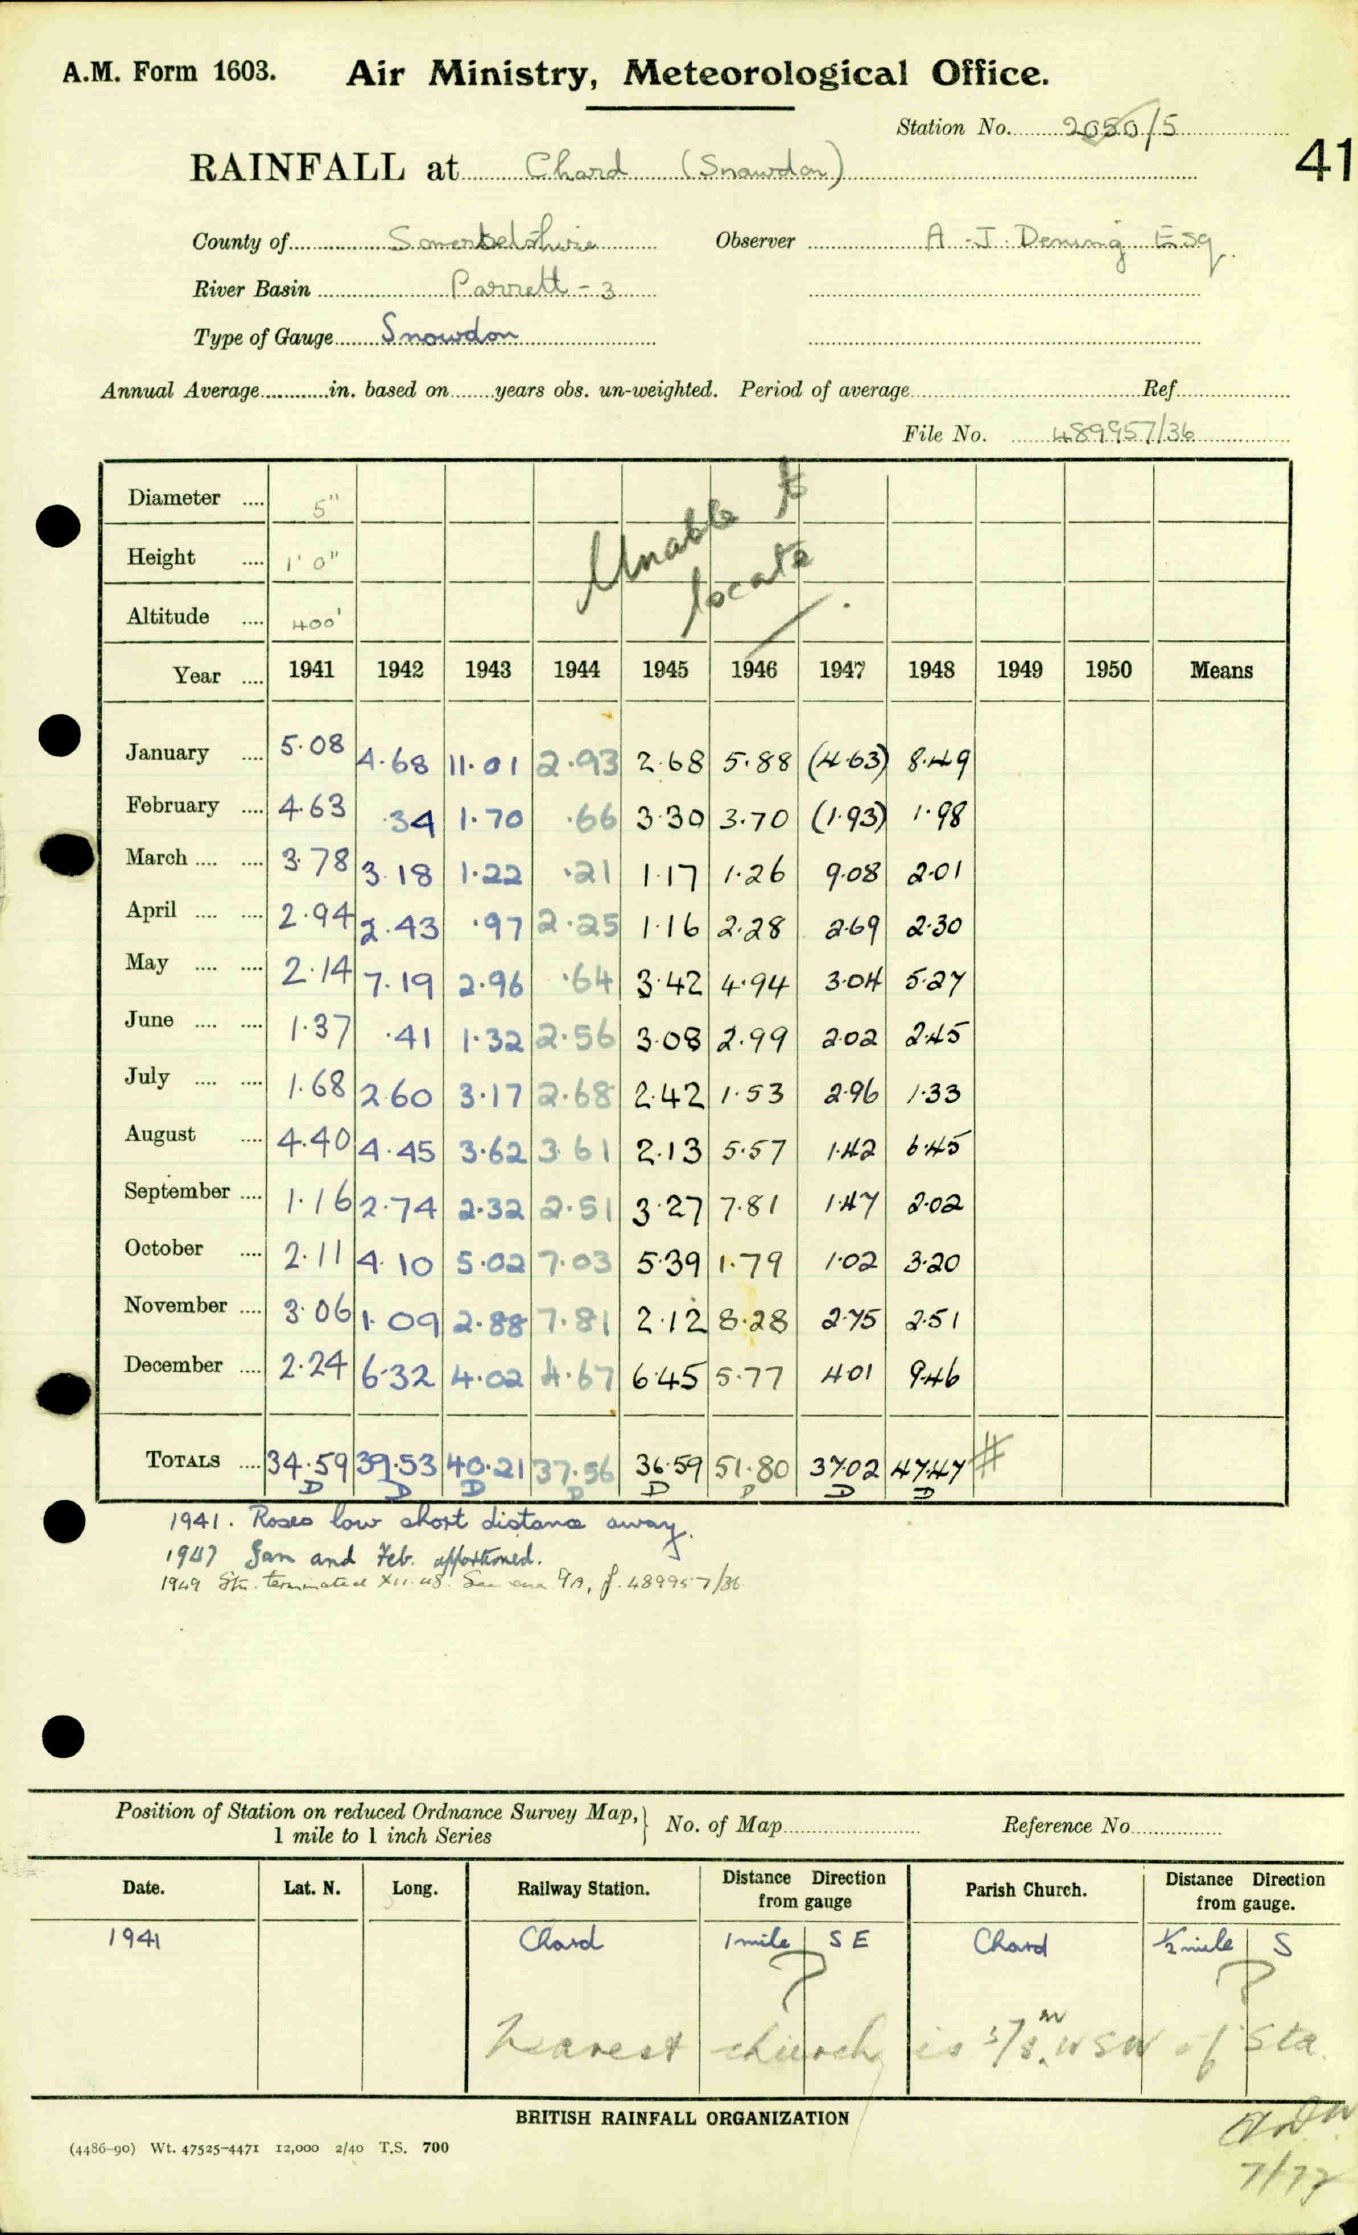 A.M. Form 1603. Air Ministry, Meteorological Office.
Station No. 2050/5
41
RAINFALL at Chard (Snowdon)
County of Somersetshire Observer A. J. Dening Esq.
River Basin Parrett - 3
Type of Gauge Snowdon
Annual Average in. based on years obs. un-weighted. Period of average Ref.
File No. 489957/36
Unable to locate
Diameter 5"
Height 1' 0"
Altitude 400'
Year 1941 1942 1943 1944 1945 1946 1947 1948 1949 1950 Means
January 5.08 4.68 11.01 2.93 2.68 5.88 (4.63) 8.49
February 4.63 .34 1.70 .66 3.30 3.70 (1.93) 1.98
March 3.78 3.18 1.22 .21 1.17 1.26 9.08 2.01
April 2.94 2.43 .97 2.25 1.16 2.28 2.69 2.30
May 2.14 7.19 2.96 .64 3.42 4.94 3.04 5.27
June 1.37 .41 1.32 2.56 3.08 2.99 2.02 2.45
July 1.68 2.60 3.17 2.68 2.42 1.53 2.96 1.33
August 4.40 4.45 3.62 3.61 2.13 5.57 1.42 6.45
September 1.16 2.74 2.32 2.51 3.27 7.81 1.47 2.02
October 2.11 4.10 5.02 7.03 5.39 1.79 1.02 3.20
November 3.06 1.09 2.88 7.81 2.12 8.28 2.75 2.51
December 2.24 6.32 4.02 4.67 6.45 5.77 4.01 9.46
TOTALS 34.59 39.53 40.21 37.56 36.59 51.80 37.02 47.47 #
D D D D D D D D
1941. Roses low short distance away.
1947 Jan and Feb. apportioned.
1949 Stn. terminated XII.48. See 9A, f. 489957/36
Position of Station on reduced Ordnance Survey Map, 1 mile to 1 inch Series } No. of Map Reference No.
Date. Lat. N. Long. Railway Station. Distance Direction from gauge Parish Church. Distance Direction from gauge.
1941 Chard 1 mile S E Chard ½ mile S
? ?
Nearest church is 5/8 m. WSW of Sta.
BRITISH RAINFALL ORGANIZATION
(4486-90) Wt. 47525-4471 12,000 2/40 T.S. 700